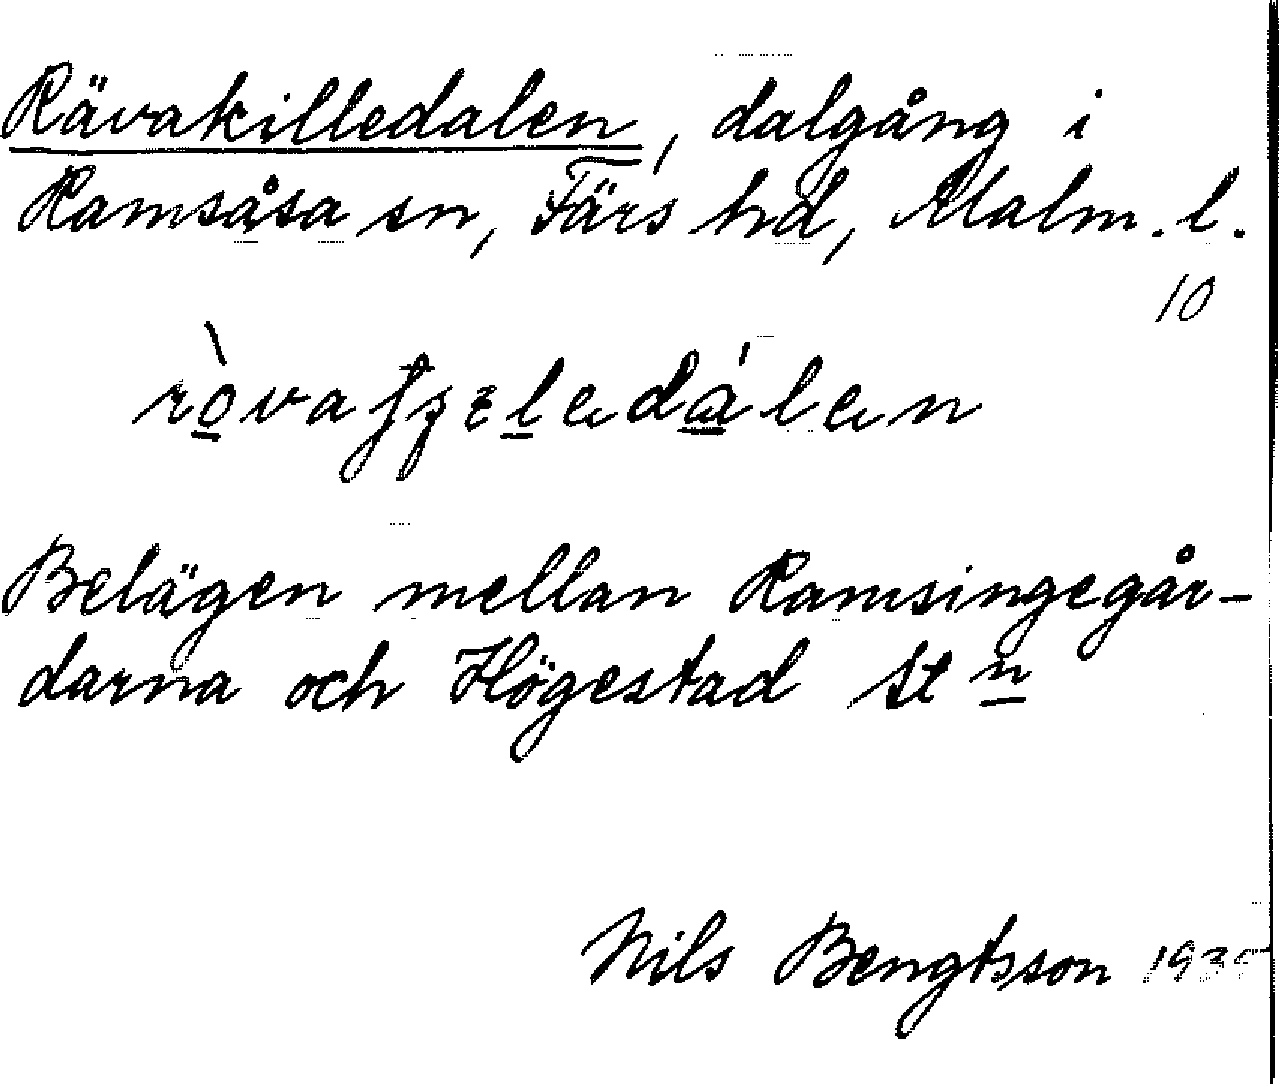 Rävakilledalen, dalgång i
Ramsåsa sn, Färs hd, Malm. l.
10
Belägen mellan Ramsingegår-
darna och Högestad Stn
Nils Bengtsson 1935